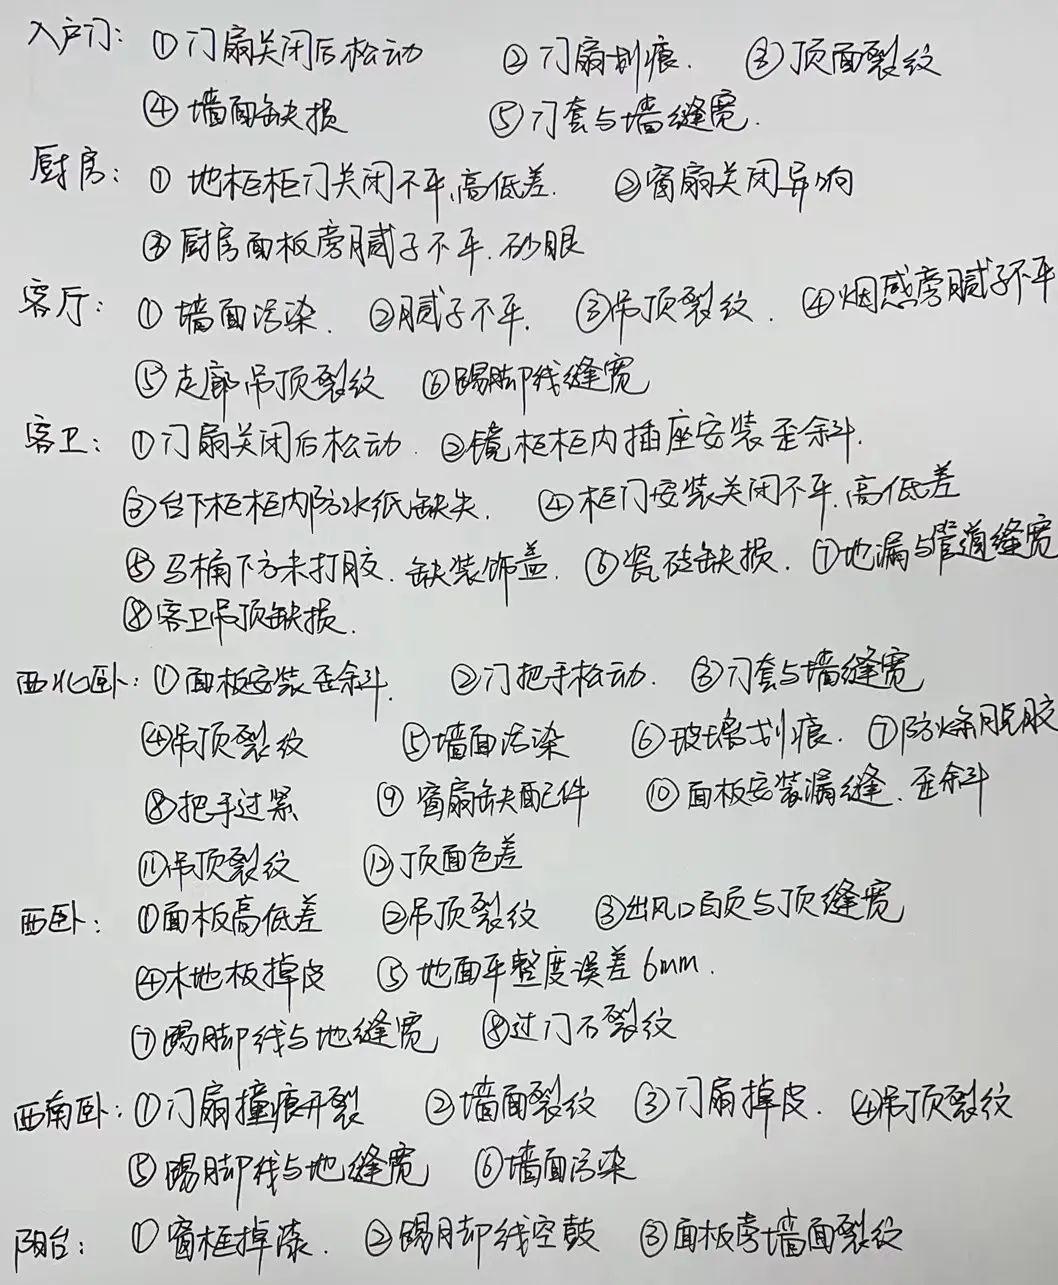 入户门: ①门扇关闭后松动 ②门扇划痕. ③顶面裂纹
④墙面缺损 ⑤门套与墙缝宽.
厨房: ①地柜柜门关闭不平,高低差. ②窗扇关闭异响
③厨房面板旁腻子不平.砂眼
客厅: ①墙面污染. ②腻子不平. ③吊顶裂纹. ④烟感旁腻子不平
⑤走廊吊顶裂纹 ⑥踢脚线缝宽
客卫: ①门扇关闭后松动. ②镜柜柜内插座安装歪斜.
③台下柜柜内防水纸缺失. ④柜门安装关闭不平.高低差
⑤马桶下方未打胶.缺装饰盖. ⑥瓷砖缺损. ⑦地漏与管道缝宽
⑧客卫吊顶缺损.
西北卧: ①面板安装歪斜. ②门把手松动. ③门套与墙缝宽
④吊顶裂纹 ⑤墙面污染 ⑥玻璃划痕. ⑦防燥脱胶
⑧把手过紧 ⑨窗扇缺配件 ⑩面板安装漏缝.歪斜
⑪吊顶裂纹 ⑫顶面色差
西卧: ①面板高低差 ②吊顶裂纹 ③出风口百页与顶缝宽
④木地板掉皮 ⑤地面平整度误差6mm.
⑦踢脚线与地缝宽 ⑧过门石裂纹
西南卧: ①门扇撞痕开裂 ②墙面裂纹 ③门扇掉皮. ④吊顶裂纹
⑤踢脚线与地缝宽 ⑥墙面污染
阳台: ①窗框掉漆. ②踢脚线空鼓 ③面板旁墙面裂纹